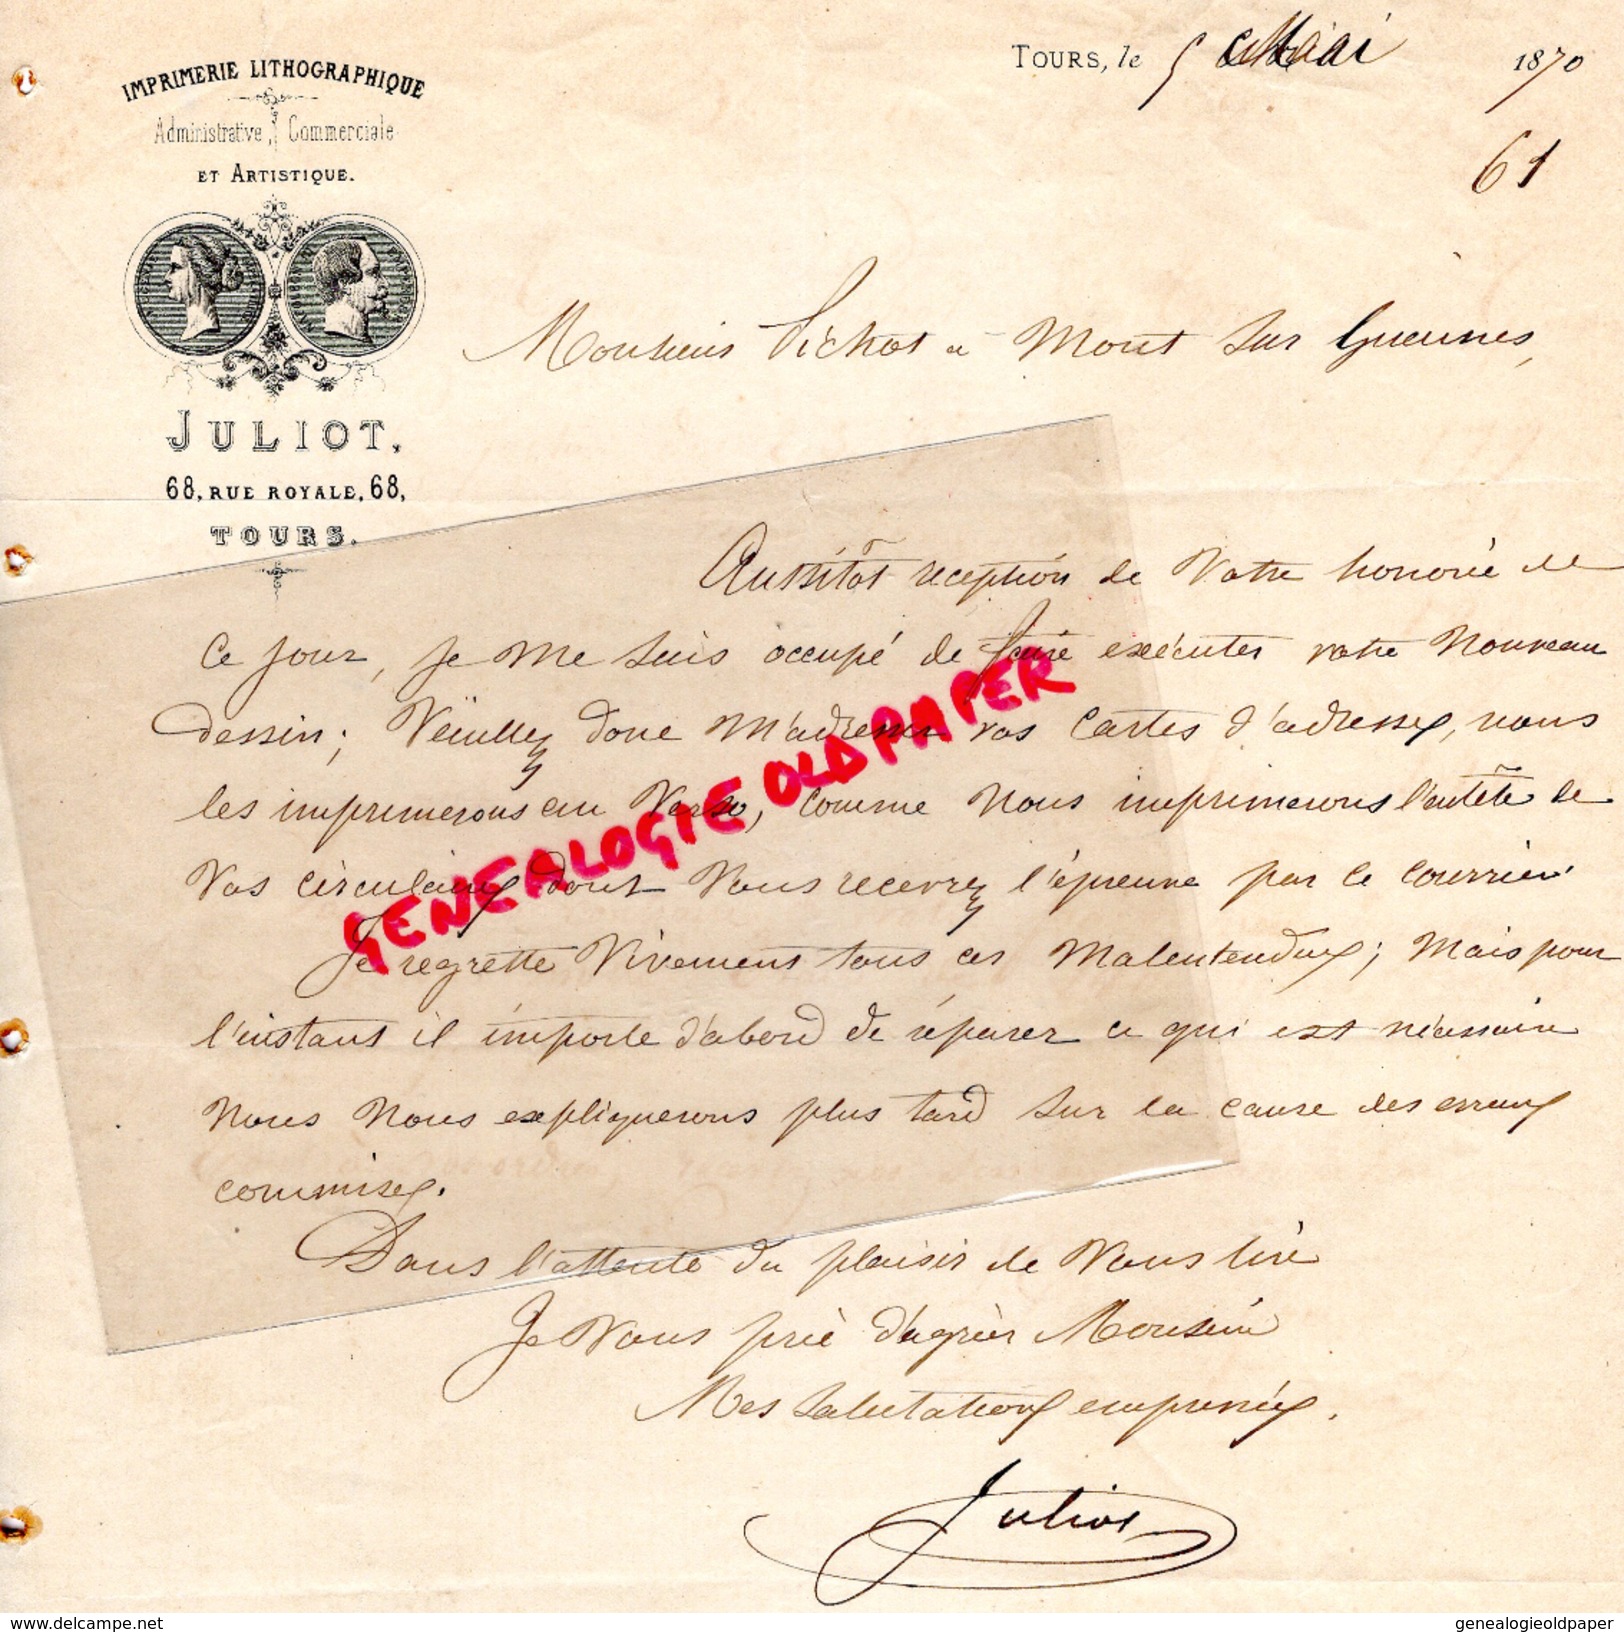 IMPRIMERIE LITHOGRAPHIQUE
Administrative, Commerciale
ET ARTISTIQUE.
JULIOT,
68, RUE ROYALE, 68,
TOURS.
TOURS, le 5 Mai 1870
61
Monsieur Pichot a Mont sur Guesnes,
Aussitôt reception de Votre honorée de
Ce jour, je me suis occupé de faire exécuter votre Nouveau
dessin; Veuillez donc m'adresser vos Cartes d'adresses, nous
les imprimerons au Verso, comme nous imprimerons l'entête de
Vos circulaires dont Vous recevrez l'épreuve par ce courrier
Je regrette Vivement tous ces Malentendus; Mais pour
l'instant il importe d'abord de réparer ce qui est nécessaire
Nous Nous expliquerons plus tard sur la cause des erreurs
commises.
Dans l'attente du plaisir de Vous lire
Je Vous prie d'agréer Monsieur
Mes salutations empressées.
Juliot
GENEALOGIE OLD PAPER
www.delcampe.net
genealogieoldpaper